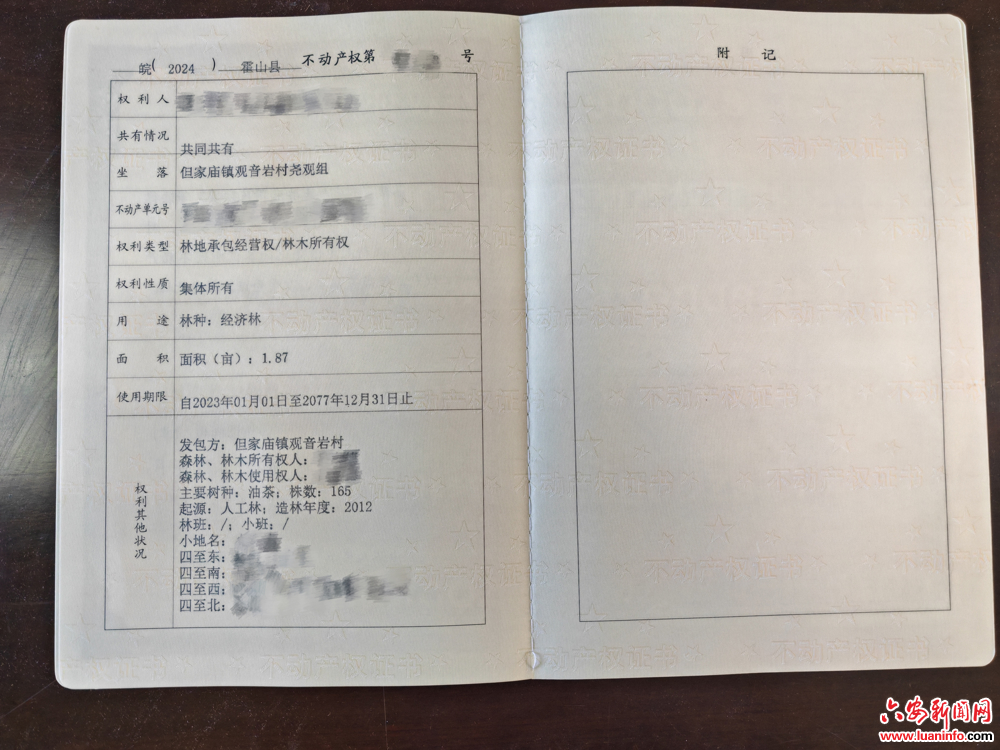 皖( 2024 ) 霍山县 不动产权第 号
权利人
共有情况 共同共有
坐落 但家庙镇观音岩村尧观组
不动产单元号
权利类型 林地承包经营权/林木所有权
权利性质 集体所有
用途 林种：经济林
面积 面积（亩）：1.87
使用期限 自2023年01月01日至2077年12月31日止
权利其他状况
发包方：但家庙镇观音岩村
森林、林木所有权人：
森林、林木使用权人：
主要树种：油茶；株数：165
起源：人工林；造林年度：2012
林班：/；小班：/
小地名：
四至东：
四至南：
四至西：
四至北：
附记
不动产权证书
六安新闻网
www.luaninfo.com